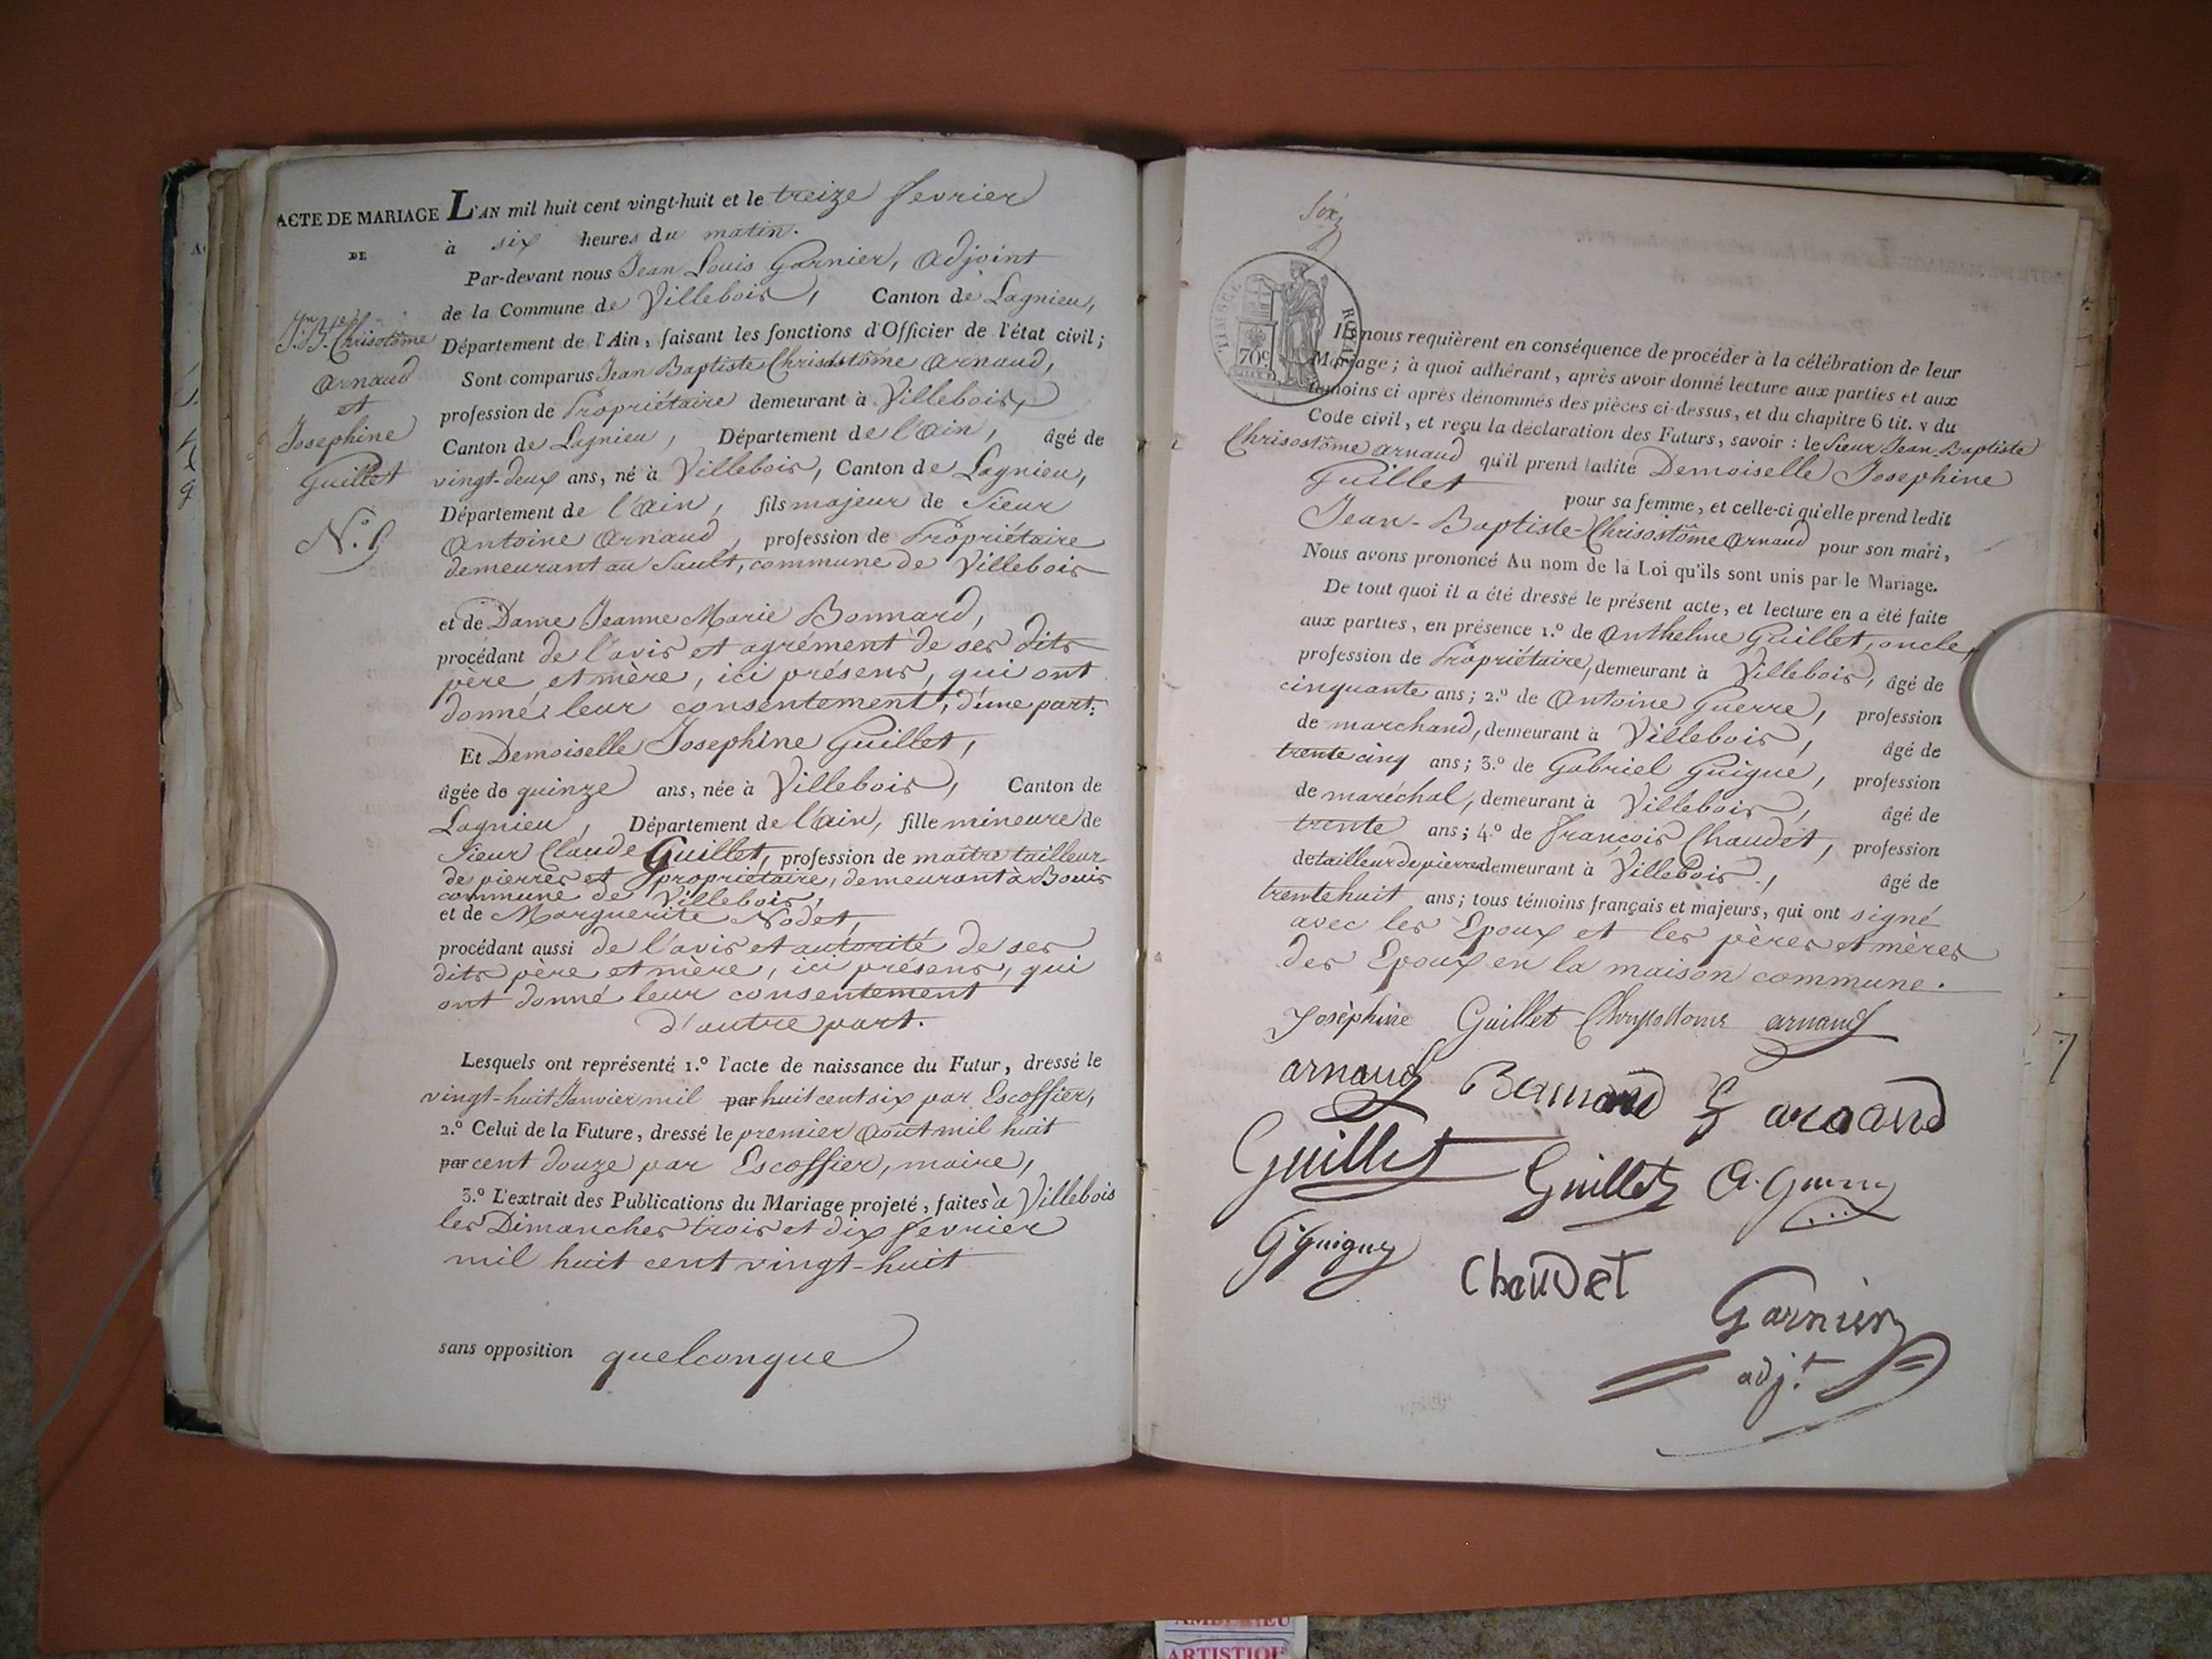 ACTE DE MARIAGE
DE
Jn. Bte. Chrisotôme
Arnaud
et
Josephine
Guillet
L'AN mil huit cent vingt-huit et le treize fevrier
à six heures du matin.
Par-devant nous Jean Louis Garnier, Adjoint
de la Commune de Villebois, Canton de Lagnieu,
Département de l'Ain, faisant les fonctions d'Officier de l'état civil;
Sont comparus Jean Baptiste Chrisostôme Arnaud,
profession de Propriétaire demeurant à Villebois,
Canton de Lagnieu, Département de l'Ain, âgé de
vingt-deux ans, né à Villebois, Canton de Lagnieu,
Département de l'Ain, fils majeur de Sieur
Antoine Arnaud, profession de Propriétaire
demeurant au Sault, commune de Villebois
et de Dame Jeanne Marie Bonnard,
procédant de l'avis et agrément de ses dits
père et mère, ici présens, qui ont
donné leur consentement, d'une part;
Et Demoiselle Josephine Guillet,
âgée de quinze ans, née à Villebois, Canton de
Lagnieu, Département de l'Ain, fille mineure de
Sieur Claude Guillet, profession de maître tailleur
de pierres et propriétaire, demeurant à Bouis
commune de Villebois,
et de Marguerite Nodet,
procédant aussi de l'avis et autorité de ses
dits père et mère, ici présens, qui
ont donné leur consentement
d'autre part.
Lesquels ont représenté 1.º l'acte de naissance du Futur, dressé le
vingt-huit Janvier mil par huit cent six par Escoffier,
2.º Celui de la Future, dressé le premier Août mil huit
par cent douze par Escoffier, maire,
3.º L'extrait des Publications du Mariage projeté, faites à Villebois
les Dimanches trois et dix fevrier
mil huit cent vingt-huit
sans opposition quelconque
Six
TIMBRE ROYAL
70c
Ils nous requièrent en conséquence de procéder à la célébration de leur
Mariage; à quoi adhérant, après avoir donné lecture aux parties et aux
témoins ci après dénommés des pièces ci-dessus, et du chapitre 6 tit. v du
Code civil, et reçu la déclaration des Futurs, savoir: le Sieur Jean Baptiste
Chrisostôme Arnaud qu'il prend ladite Demoiselle Josephine
Guillet pour sa femme, et celle-ci qu'elle prend ledit
Jean-Baptiste-Chrisostôme Arnaud pour son mari,
Nous avons prononcé Au nom de la Loi qu'ils sont unis par le Mariage.
De tout quoi il a été dressé le présent acte, et lecture en a été faite
aux parties, en présence 1.º de Anthelme Guillet, oncle,
profession de Propriétaire, demeurant à Villebois, âgé de
cinquante ans; 2.º de Antoine Guerre, profession
de marchand, demeurant à Villebois, âgé de
trente cinq ans; 3.º de Gabriel Guigue, profession
de maréchal, demeurant à Villebois, âgé de
trente ans; 4.º de François Chaudet, profession
de tailleur de pierres demeurant à Villebois, âgé de
trente huit ans; tous témoins français et majeurs, qui ont signé
avec les Epoux et les pères et mères
des Epoux en la maison commune.
Josèphine Guillet Chrysostome arnaud
arnaud
Guillet Guillet
Chaudet
Garnier
adj.t
ARTISTIQUE